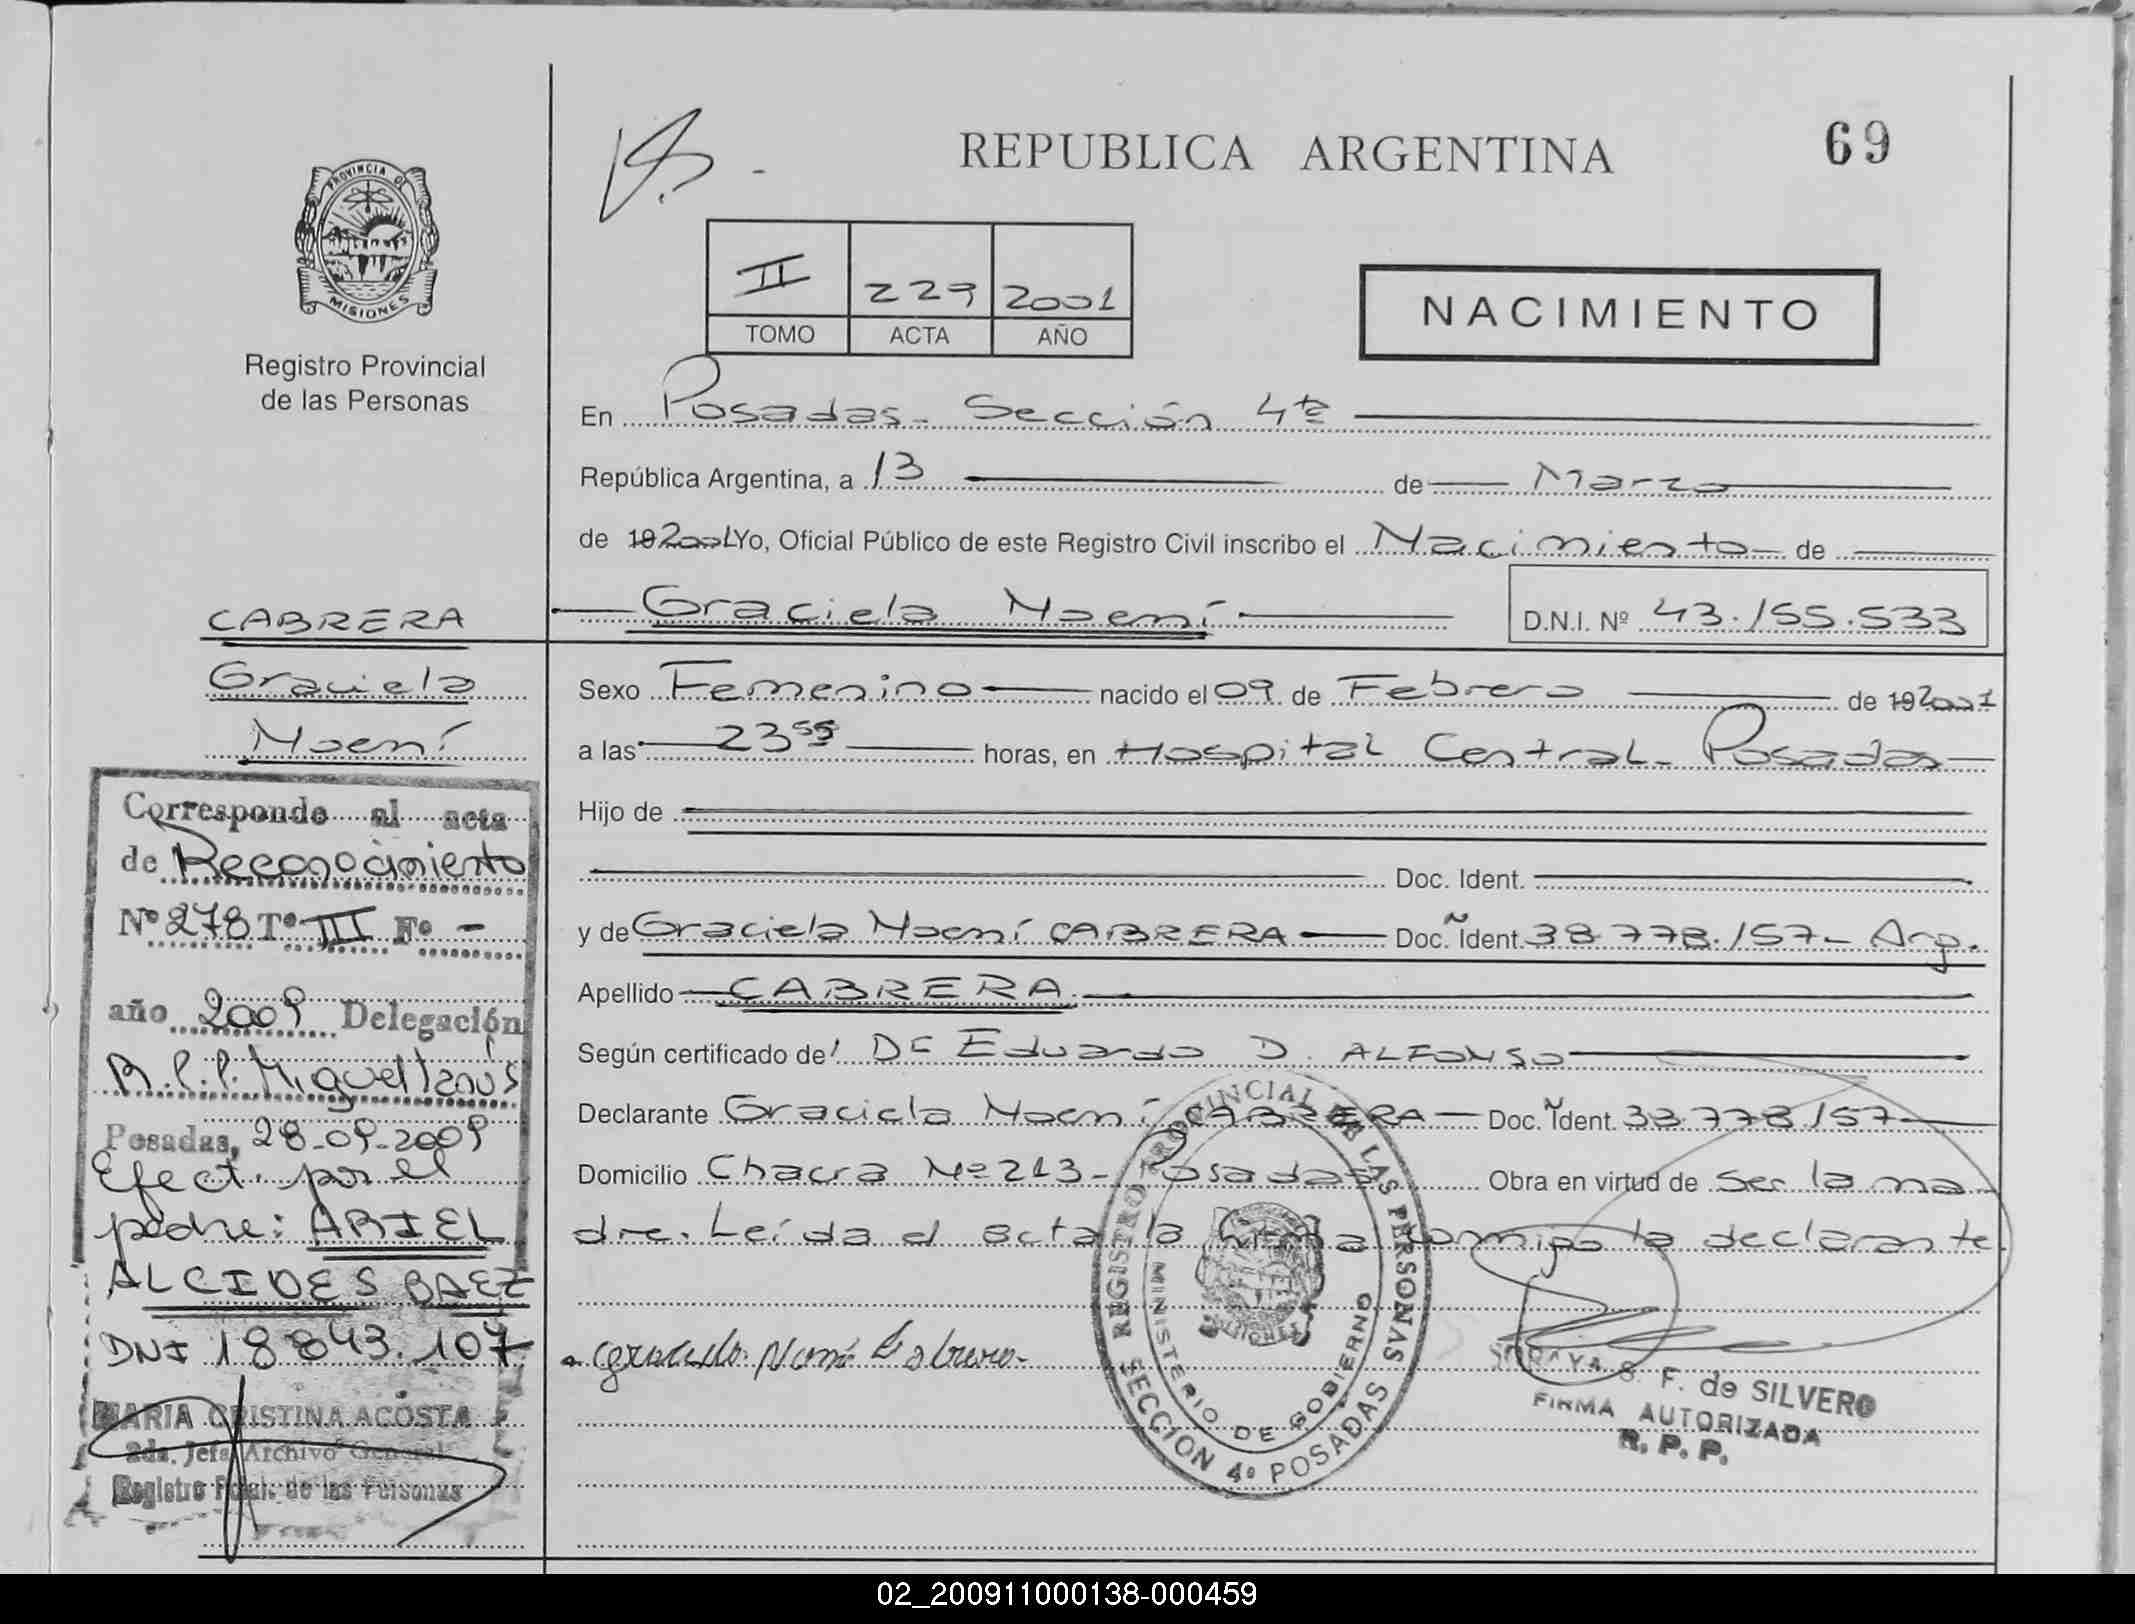 REPUBLICA ARGENTINA
69
PROVINCIA DE
MISIONES
Registro Provincial
de las Personas
II 229 2001
TOMO ACTA AÑO
NACIMIENTO
En Posadas - Sección 4ta
República Argentina, a 13 de Marzo
de 192001 Yo, Oficial Público de este Registro Civil inscribo el Nacimiento de
Graciela Noemí D.N.I. Nº 43.155.533
CABRERA
Graciela
Noemí
Sexo Femenino nacido el 09 de Febrero de 192001
a las 23 55 horas, en Hospital Central - Posadas
Hijo de
Doc. Ident.
y de Graciela Noemí CABRERA Doc. Ident. 38.778.157 - Arg.
Apellido CABRERA
Según certificado de: Dr Eduardo D. ALFONSO
Declarante Graciela Noemí CABRERA Doc. Ident. 33.778.157
Domicilio Chacra Nº 213 - Posadas Obra en virtud de Ser la ma
dre. Leída el acta la firma conmigo la declarante.
Graciela Noemí Cabrera
REGISTRO PROVINCIAL DE LAS PERSONAS
MINISTERIO DE GOBIERNO
SECCION 4º POSADAS
SORAYA S. F. de SILVERO
FIRMA AUTORIZADA
R. P. P.
Corresponde al acta
de Reconocimiento
Nº 278 Tº III Fº -
año 2009 Delegación
R.P.P. Miguel Lanús
Posadas, 28-09-2009
Efect. por el
padre: ARIEL
ALCIDES BAEZ
DNI 18843.107
MARIA CRISTINA ACOSTA
2da. Jefa Archivo General
Registro Pcial. de las Personas
02_200911000138-000459